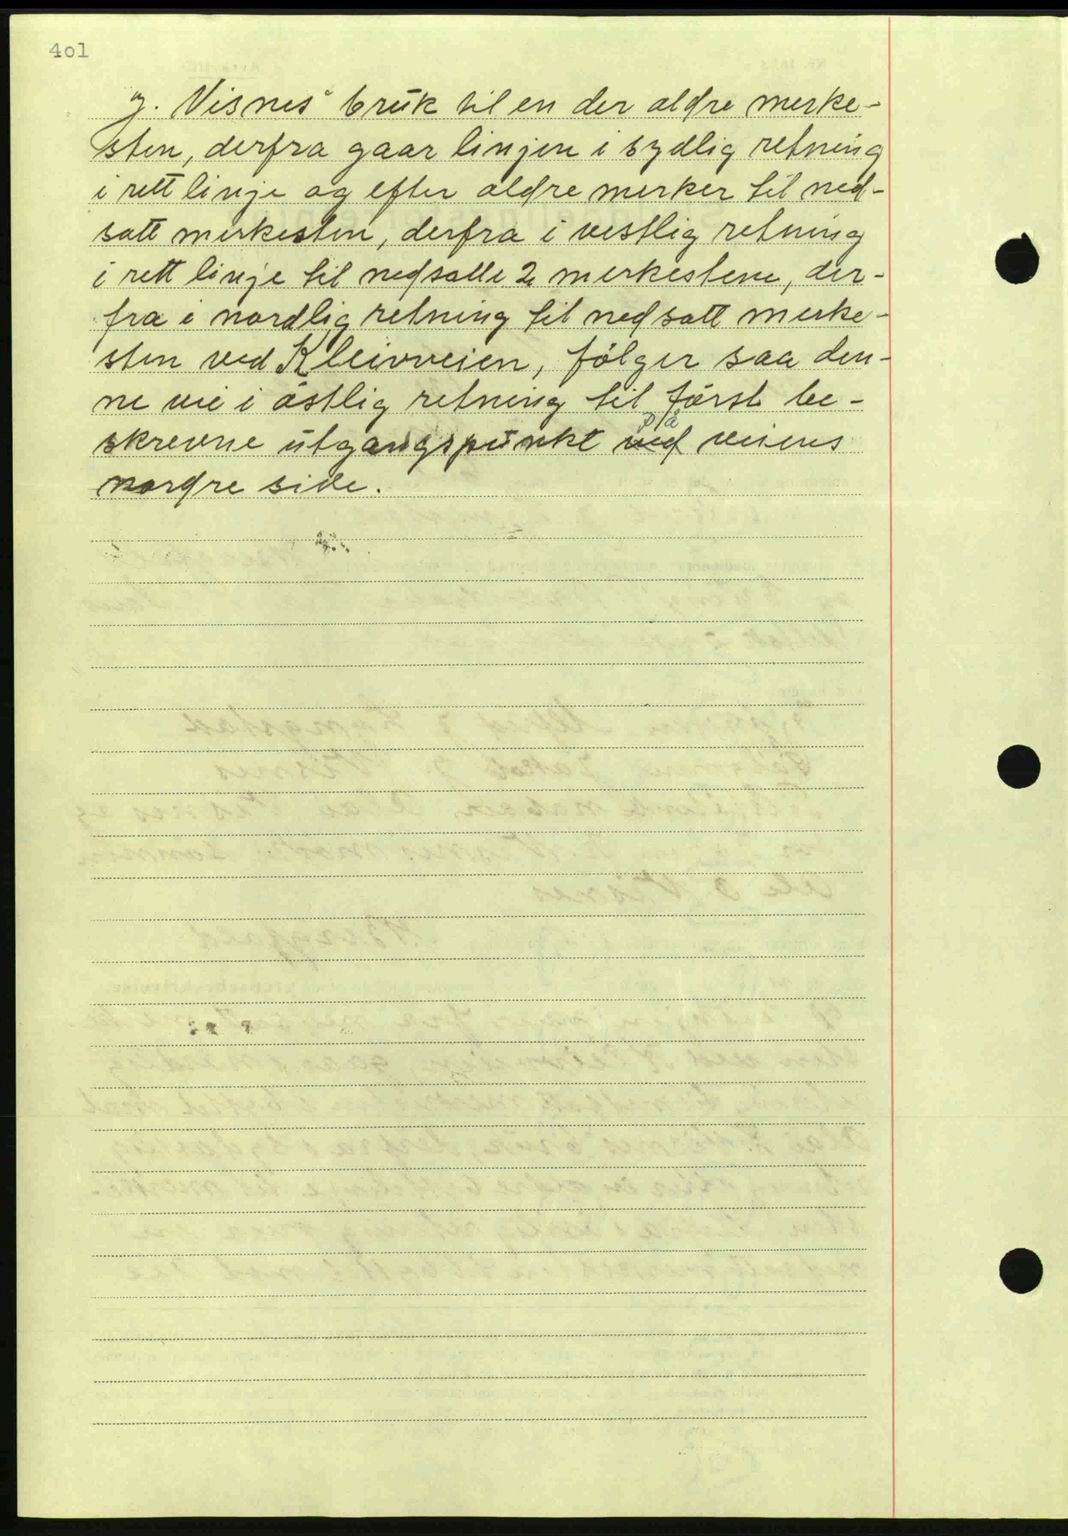 401
J. Visnes' bruk til en der aldre merke-
sten, derfra gaar linjen i sydlig retning
i rett linje og efter aldre merker til ned-
satt merkesten, derfra i vestlig retning
i rett linje til nedsatte 2 merkestene, der-
fra i nordlig retning til nedsatt merke-
sten ved Kleivveien, følger saa den-
ne vei i østlig retning til først be-
skrevne utgangspunkt på veiens
nordre side.